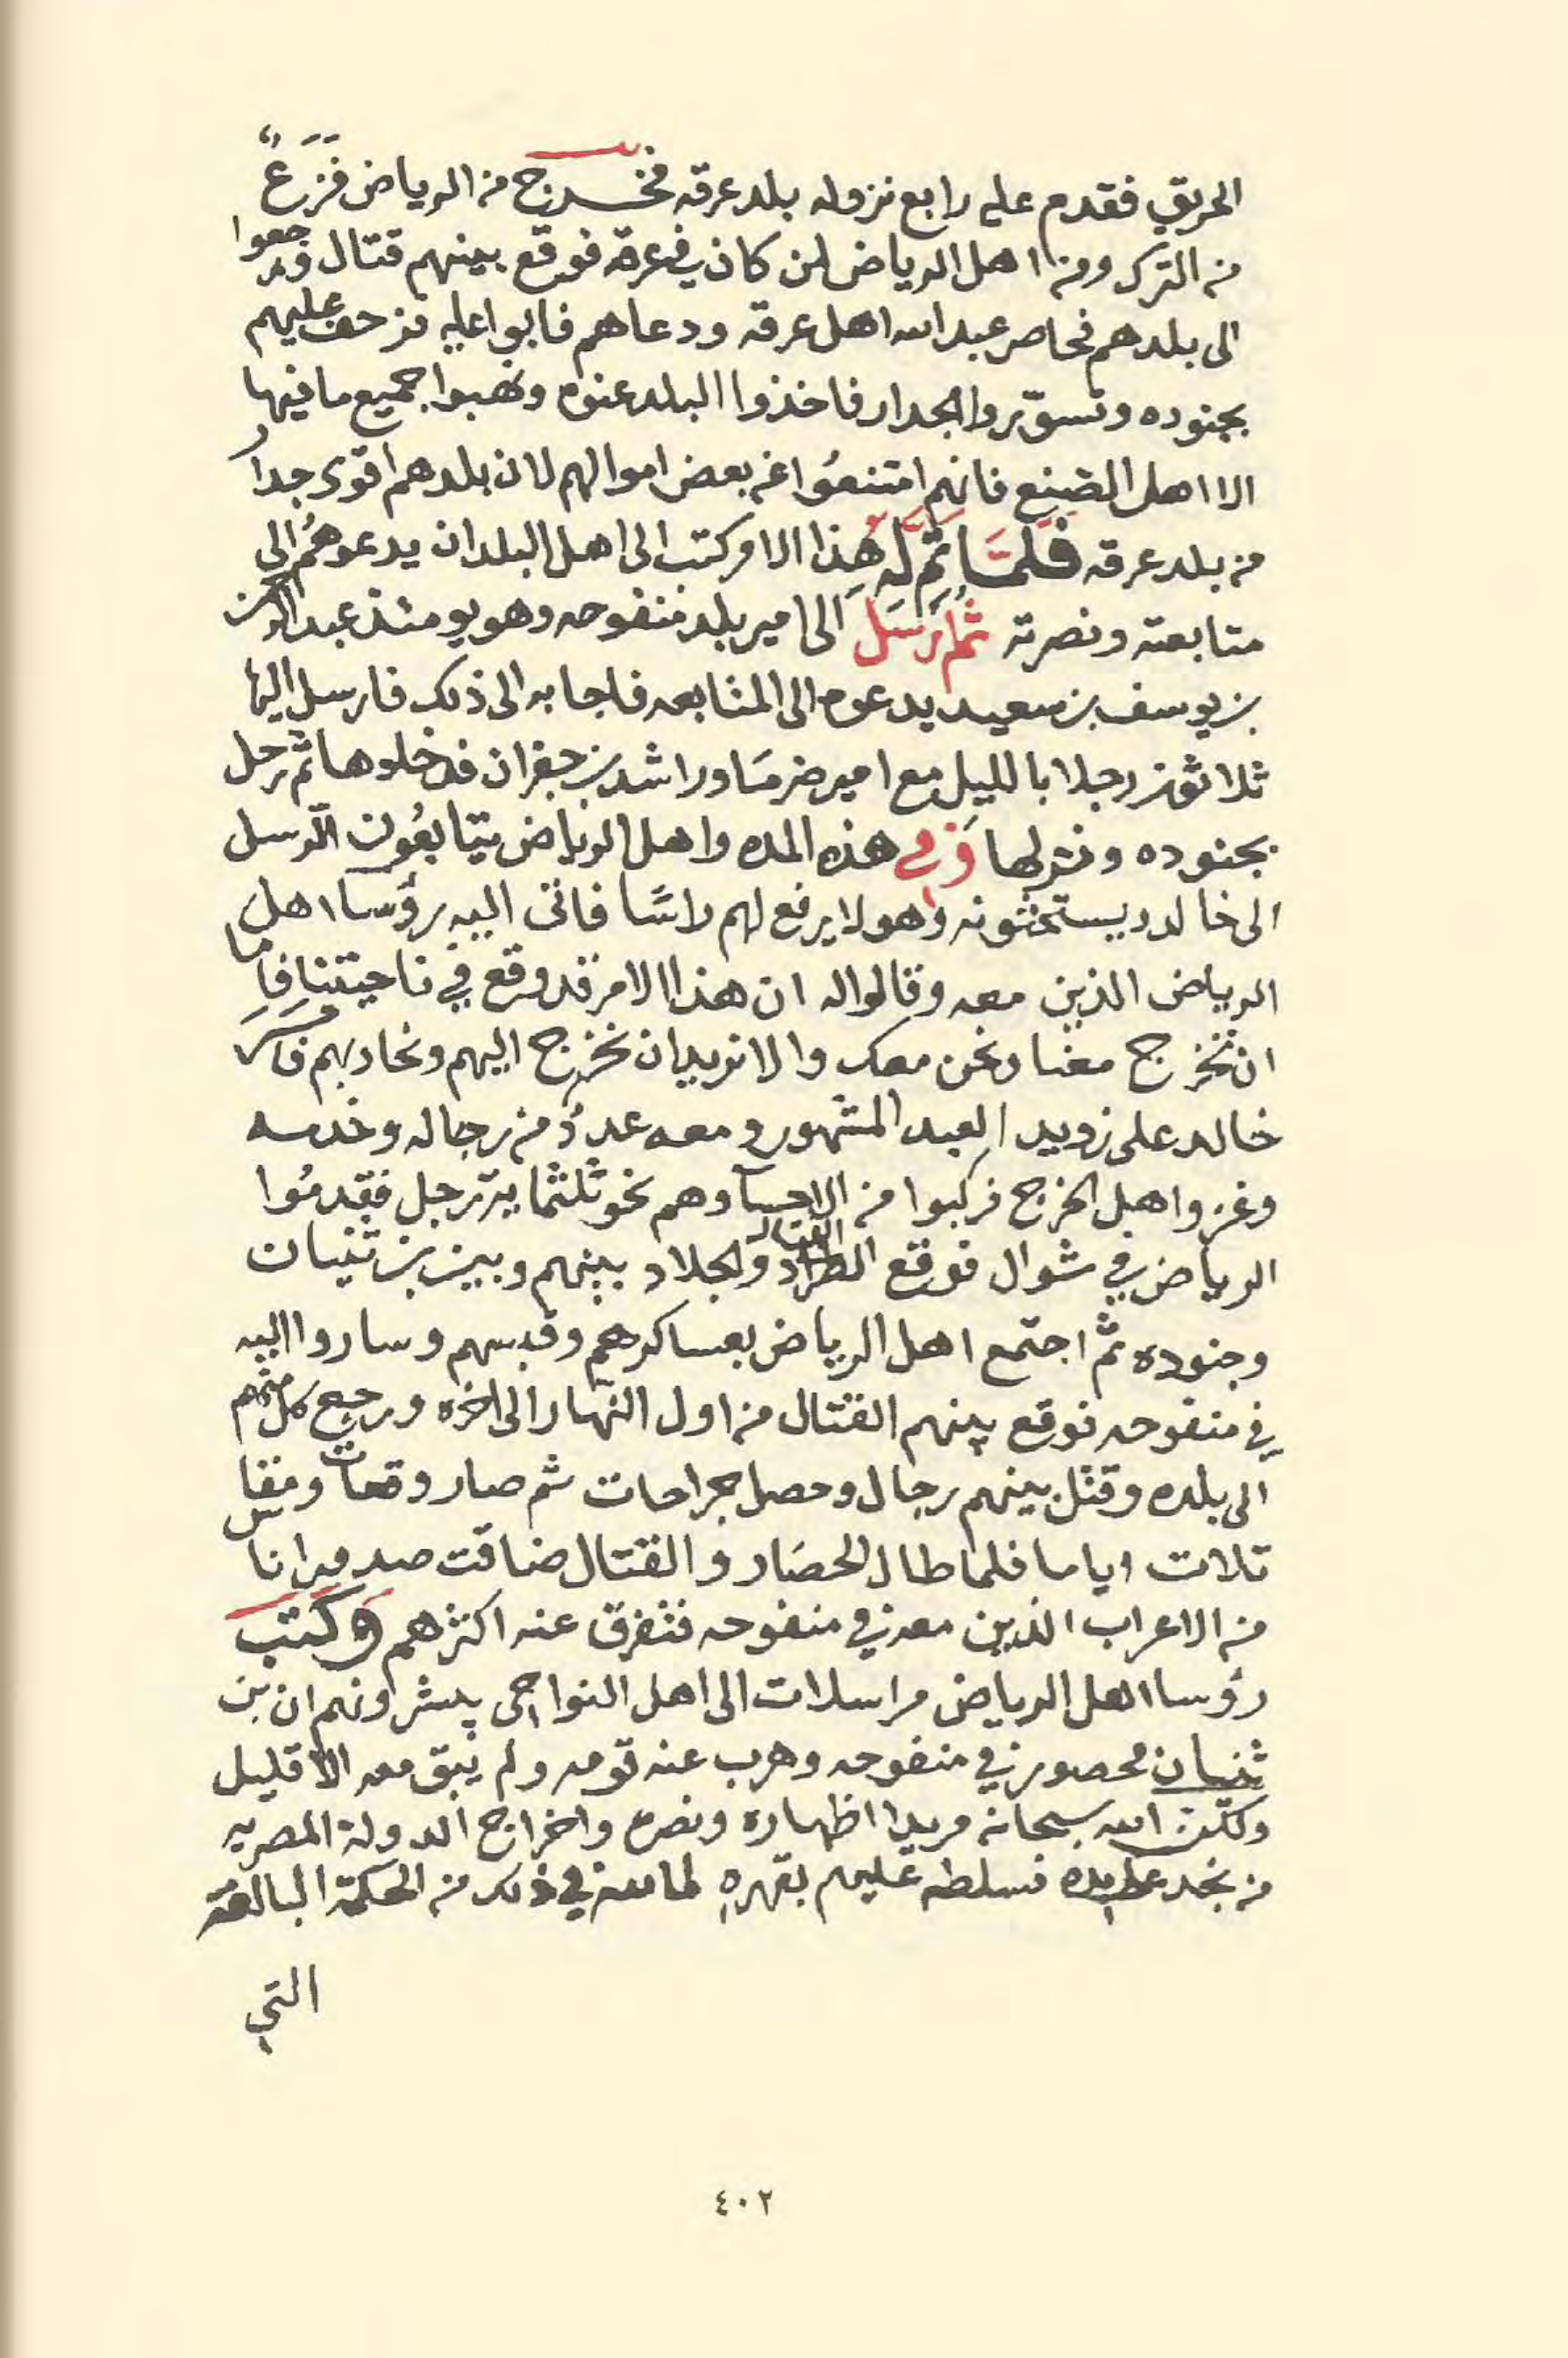 الحريق فقدم على رابع نزوله بلد عرقه فخرج من الرياض فَزَعٌ
من الترك ومن اهل الرياض لمن كان في عرقة فوقع بينهم قتال ورجعوا
الى بلدهم فحاصر عبدالله اهل عرقه ودعاهم فابوا عليه فزحف عليهم
بجنوده وتسوّروا الجدار فاخذوا البلد عنوه ونهبوا جميع ما فيها
الا اهل الصنع فانهم امتنعُوا عن بعض اموالهم لان بلدهم اقوى جدار
من بلد عرقه فلمَّا تمَّ له هذا الامر كتب الى اهل البلدان يدعوهُم الى
متابعته ونصرته ثم ارسَلَ الى امير بلد منفوحه وهو يومئذ عبدالرحمن
بن يوسف بن سعيد يدعوه الى المتابعه فاجابه الى ذلك فارسل اليها
ثلاثون رجلا بالليل مع امير ضرمَا وراشد بن جفران فدخلوها ثم رحل
بجنوده ونزلها وَفي هذه المده واهل الرياض يتابعُون الرسل
الى خالد ويستحثونه وهو لا يرفع لهم راسًا فاتى اليه رؤسا اهل
الرياض الذين معه وقالوا له ان هذا الامر قد وقع في ناحيتنا فإمّا
ان تخرج معنا ونحن معك والا نريد ان نخرج اليهم ونحاربهم فامر
خالد على زويد العبد المشهور ومعه عددٌ من رجاله وخدمه
وغزو اهل الخرج فركبوا من الاحسا وهم نحو ثلثماية رجل فقدمُوا
الرياض في شوال فوقع القتال الطراد والجلاد بينهم وبين بن ثنيان
وجنوده ثم اجتمع اهل الرياض بعساكرهم وقبسهم وساروا اليه
في منفوحه فوقع بينهم القتال من اول النهار الى اخره ورجع كل منهم
الى بلده وقتل بينهم رجال وحصل جراحات ثم صار وقعات ومقا
تلات اياما فلما طال الحصَار والقتال ضاقت صدور اناس
من الاعراب الذين معه في منفوحه فتفرق عنه اكثرهم وكتب
رؤسا اهل الرياض مراسلات الى اهل النواحي يبشرونهم ان بن
ثنيان محصور في منفوحه وهرب عنه قومه ولم يبق معه الا قليل
ولكن الله سبحانه مريدا اظهاره ونصره واخراج الدولة المصريه
من نجد على يده فسلطه عليهم بقهره لما له في ذلك من الحكمة البالغة
التي
٤٠٢